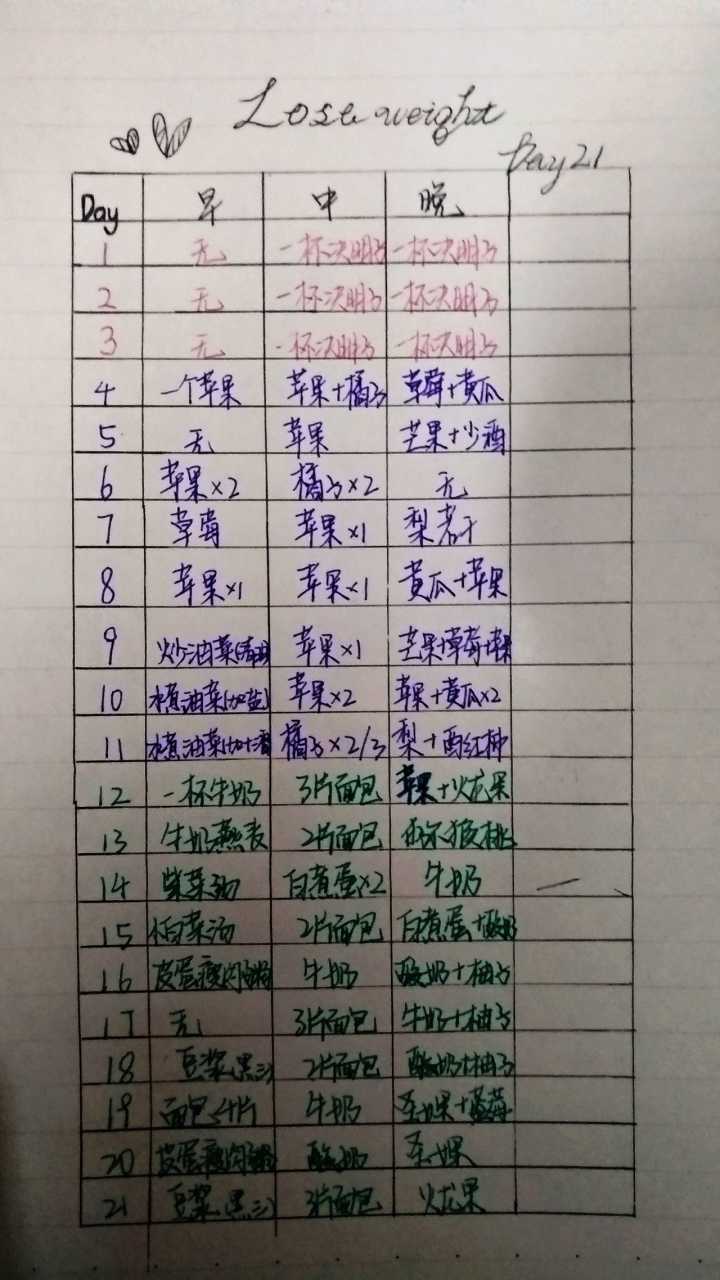 Lose weight
Day 21
Day 早 中 晚
1 无 一杯决明子 一杯决明子
2 无 一杯决明子 一杯决明子
3 无 一杯决明子 一杯决明子
4 一个苹果 苹果+橘子 草莓+黄瓜
5 无 苹果 芒果+少酒
6 苹果×2 橘子×2 无
7 草莓 苹果×1 梨若干
8 苹果×1 苹果×1 黄瓜+苹果
9 炒油菜 苹果×1 芒果+草莓+苹果
10 水煮油菜(加盐) 苹果×2 苹果+黄瓜×2
11 水煮油菜 橘子×2/3 梨+西红柿
12 一杯牛奶 3片面包 苹果+火龙果
13 牛奶燕麦 2片面包 猕猴桃
14 紫菜汤 白煮蛋×2 牛奶
15 白菜汤 2片面包 白煮蛋+酸奶
16 皮蛋瘦肉粥 牛奶 酸奶+柚子
17 无 3片面包 牛奶+柚子
18 豆浆(黑豆) 2片面包 酸奶+柚子
19 面包 片 牛奶 圣女果+草莓
20 皮蛋瘦肉粥 酸奶 圣女果
21 豆浆(黑豆) 3片面包 火龙果